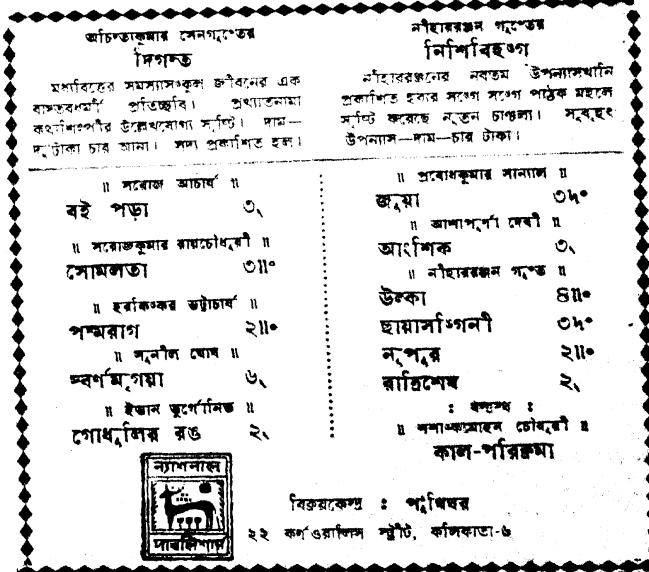 অচিন্ত্যকুমার সেনগুপ্তের
দিগন্ত
মধ্যবিত্তের সমস্যাসংকুল জীবনের এক
বাস্তবধর্মী প্রতিচ্ছবি। প্রখ্যাতনামা
কথাশিল্পীর উল্লেখযোগ্য সৃষ্টি। দাম—
দু'টাকা চার আনা। সদ্য প্রকাশিত হল।
নীহাররঞ্জন গুপ্তের
নিশিবিহঙ্গ
নীহাররঞ্জনের নবতম উপন্যাসখানি
প্রকাশিত হবার সঙ্গে সঙ্গে পাঠক মহলে
সৃষ্টি করেছে নূতন চাঞ্চল্য। সুবৃহৎ
উপন্যাস—দাম—চার টাকা।
॥ সরোজ আচার্য ॥
বই পড়া ৩৲
॥ সরোজকুমার রায়চৌধুরী ॥
সোমলতা ৩॥০
॥ হরকিঙ্কর ভট্টাচার্য ॥
পদ্মরাগ ২॥০
॥ সুনীল ঘোষ ॥
স্বর্ণমৃগয়া ৬৲
॥ ইভান তুর্গেনিভ ॥
গোধূলির রঙ ২৲
॥ প্রবোধকুমার সান্যাল ॥
জয়া ৩৸০
॥ আশাপূর্ণা দেবী ॥
আংশিক ৩৲
॥ নীহাররঞ্জন গুপ্ত ॥
উল্কা ৪॥০
ছায়াসঙ্গিনী ৩৸০
নূপুর ২॥০
রাত্রিশেষ ২৲
: যন্ত্রস্থ :
॥ শশাঙ্কমোহন চৌধুরী ॥
কাল-পরিক্রমা
ন্যাশনাল
পাবলিশার্স
বিক্রয়কেন্দ্র : পুঁথিঘর
২২ কর্নওয়ালিস স্ট্রীট, কলিকাতা-৬